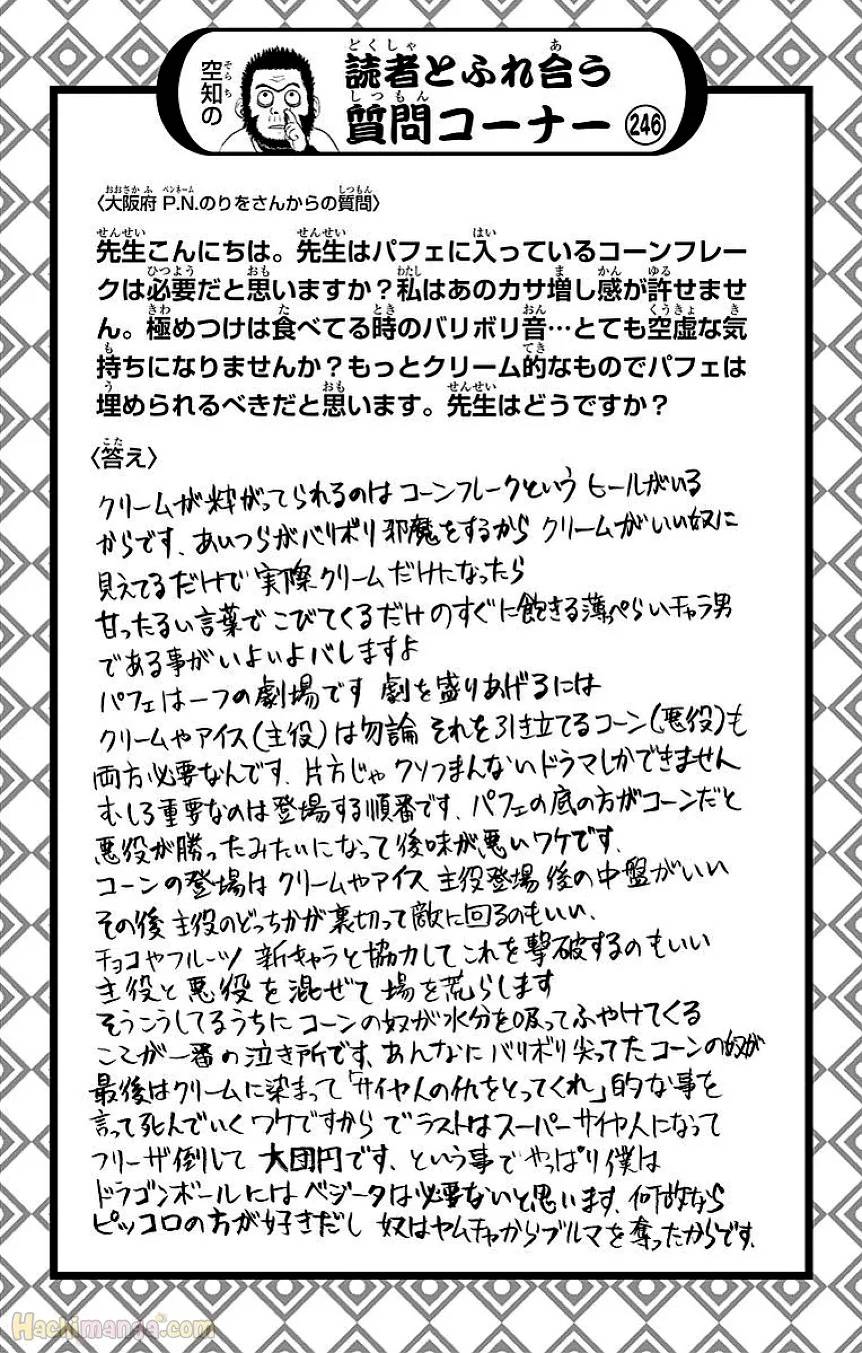 空知の
読者とふれ合う
質問コーナー 246
〈大阪府 P.N.のりをさんからの質問〉
先生こんにちは。先生はパフェに入っているコーンフレー
クは必要だと思いますか?私はあのカサ増し感が許せませ
ん。極めつけは食べてる時のバリボリ音…とても空虚な気
持ちになりませんか?もっとクリーム的なものでパフェは
埋められるべきだと思います。先生はどうですか?
〈答え〉
クリームが粋がってられるのは コーンフレークという ヒールがいる
からです、あいつらがバリボリ邪魔をするから クリームがいい奴に
見えてるだけで 実際クリームだけになったら
甘ったるい言葉で こびてくるだけの すぐに飽きる薄っぺらいチャラ男
である事がいよいよバレますよ
パフェは一つの劇場です 劇を盛りあげるには
クリームやアイス(主役)は勿論 それを引き立てるコーン(悪役)も
両方必要なんです、片方じゃ クソつまんないドラマしかできません
むしろ重要なのは登場する順番です、パフェの底の方がコーンだと
悪役が勝ったみたいになって後味が悪いワケです、
コーンの登場は クリームやアイス 主役登場 後の中盤がいい
その後 主役のどっちかが裏切って敵に回るのもいい、
チョコやフルーツ 新キャラと協力して これを撃破するのもいい
主役と悪役を混ぜて 場を荒らします
そうこうしてるうちに コーンの奴が水分を吸ってふやけてくる
ここが一番の泣き所です、あんなに バリボリ尖ってた コーンの奴が
最後はクリームに染まって「サイヤ人の仇をとってくれ」的な事を
言って死んでいくワケですから で ラストはスーパーサイヤ人になって
フリーザ倒して 大団円です、という事で やっぱり僕は
ドラゴンボールには ベジータは必要ないと思います、何故なら
ピッコロの方が好きだし 奴はヤムチャからブルマを奪ったからです、
Hachimanga.com